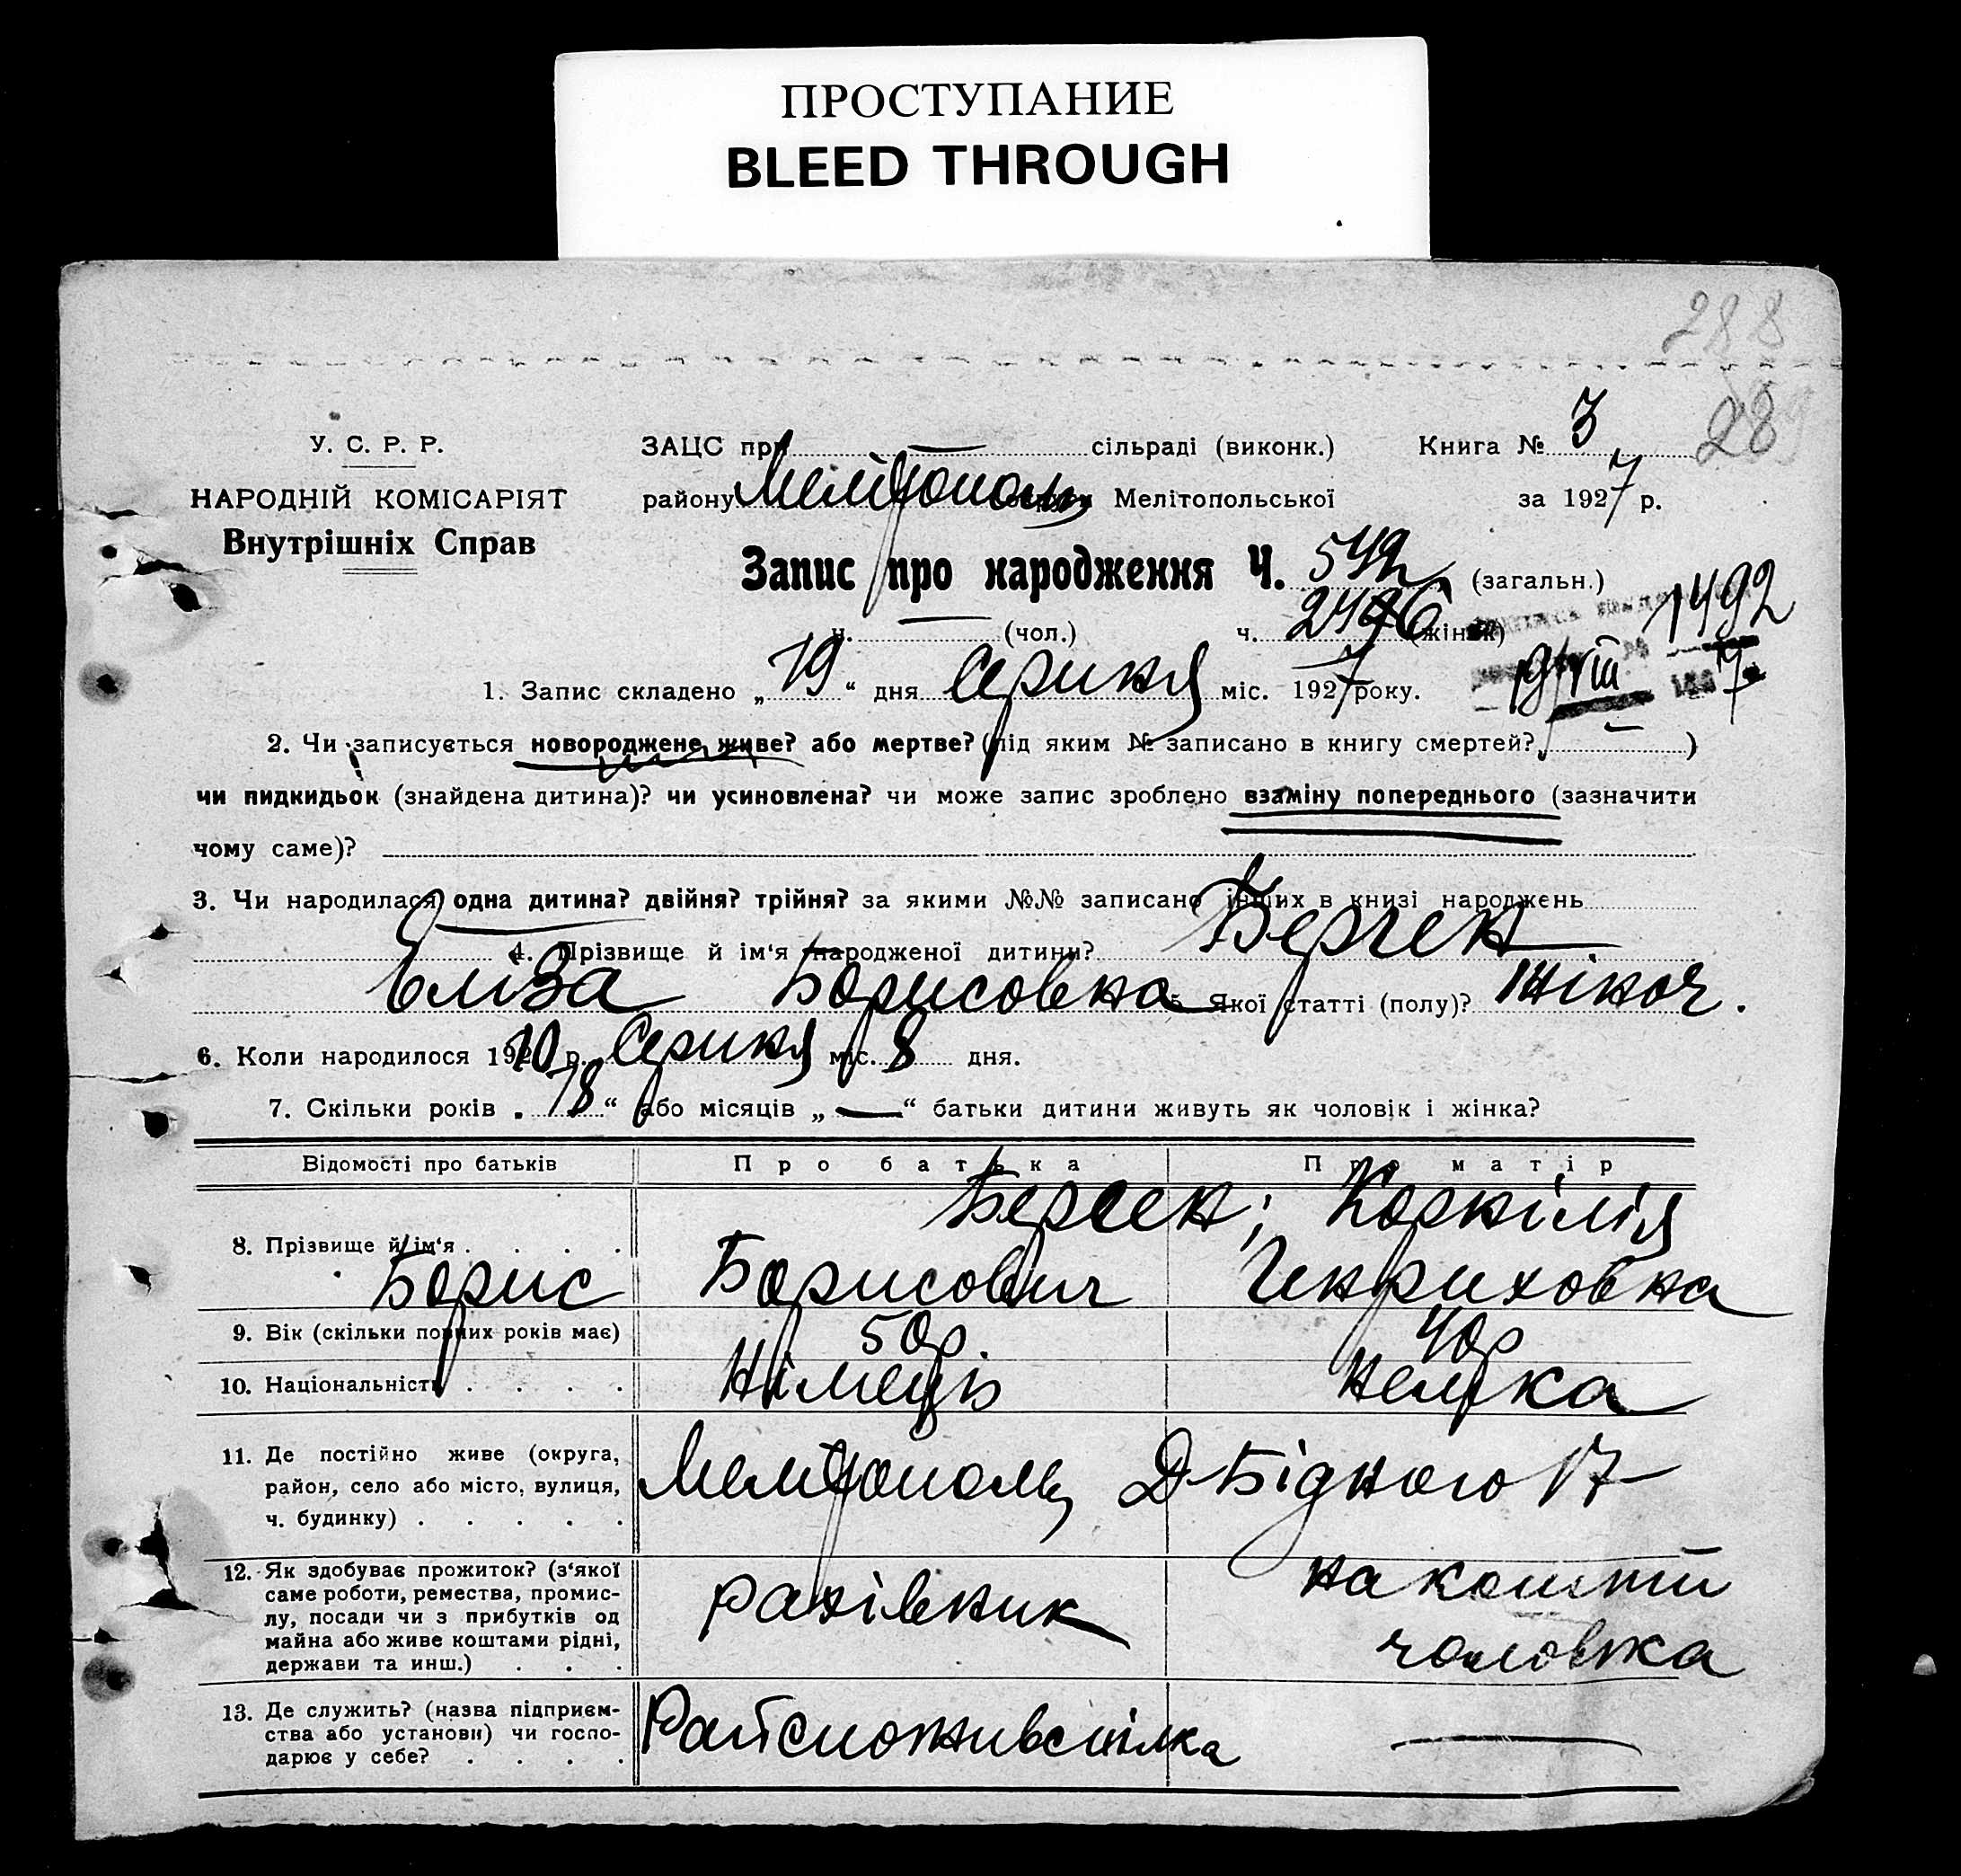 ПРОСТУПАНИЕ
BLEED THROUGH
288
28
У. С. Р. Р.
НАРОДНІЙ КОМІСАРІЯТ
Внутрішніх Справ
ЗАЦС при — сільраді (виконк.) Книга № 3
району Мелітополь округи Мелітопольської за 1927 р.
Запис про народження Ч. 542 (загальн.)
ч. — (чол.) ч. (жінок) 1492
1. Запис складено „19“ дня Серпня міс. 1927 року. 19/VIII 7
2. Чи записується новороджене живе? або мертве? (під яким № записано в книгу смертей? — )
чи пидкидьок (знайдена дитина)? чи усиновлена? чи може запис зроблено взаміну попереднього (зазначити
чому саме)?
3. Чи народилася одна дитина? двійня? трійня? за якими №№ записано інших в книзі народжень
4. Прізвище й ім'я народженої дитини? Берген
Еліза Борисовна 5. Якої статті (полу)? жіноч.
6. Коли народилося 1920 р. Серпня міс. 8 дня.
7. Скільки років „18“ або місяців „—“ батьки дитини живуть як чоловік і жінка?
Відомості про батьків Про батька Про матір
Берген; Корнілія
8. Прізвище й ім'я . . . .
Борис Борисович Генриховна
9. Вік (скільки повних років має) 50р 40р
10. Національність . . . . Німець немка
11. Де постійно живе (округа,
район, село або місто, вулиця,
ч. будинку) . . . . .
Мелитополь Д Бідного 17
12. Як здобуває прожиток? (з'якої
саме роботи, ремества, промис-
лу, посади чи з прибутків од
майна або живе коштами рідні,
держави та инш.) . . .
рахівник на кошти
чоловіка
13. Де служить? (назва підприєм-
ства або установи) чи госпо-
дарює у себе? . . . .
Райспоживспілка —